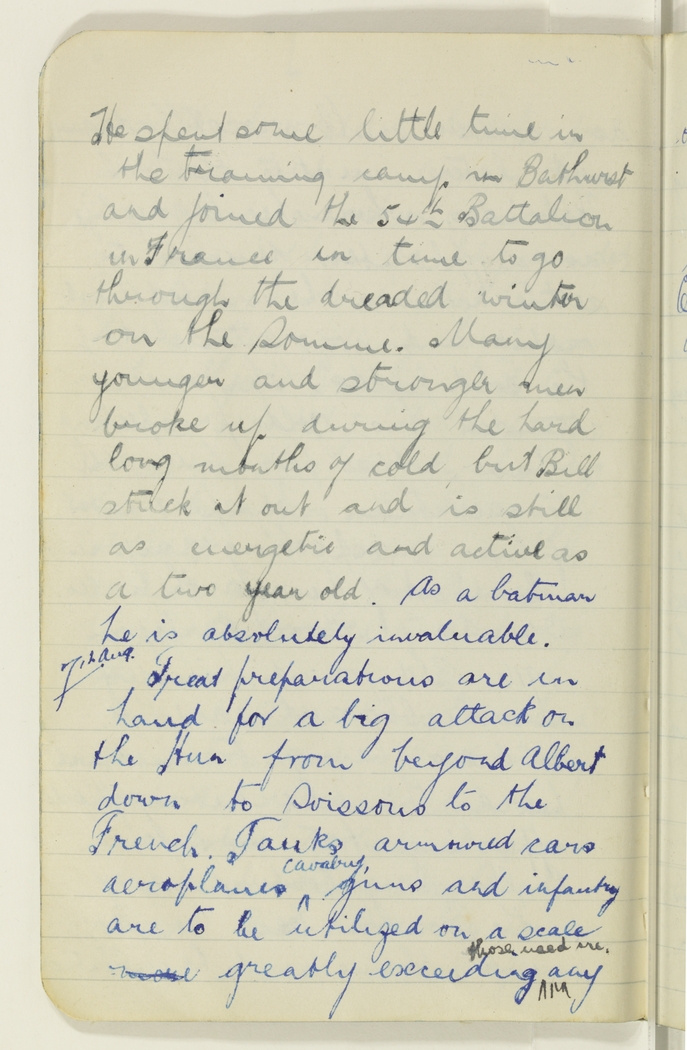 He spent some little time in
the training camp in Bathurst
and joined the 54th Battalion
in France in time to go
through the dreaded winter
on the Somme. Many
younger and stronger men
broke up during the hard
long months of cold but Bill
stuck it out and is still
as energetic and active as
a two year old. As a batman
he is absolutely invaluable.
7th Aug.
Great preparations are in
hand for a big attack on
the Hun from beyond Albert
down to Soissons to the
French. Tanks, armoured cars
cavalry,
aeroplanes ^ guns and infantry
are to be utilized on a scale
those used
greatly exceeding any